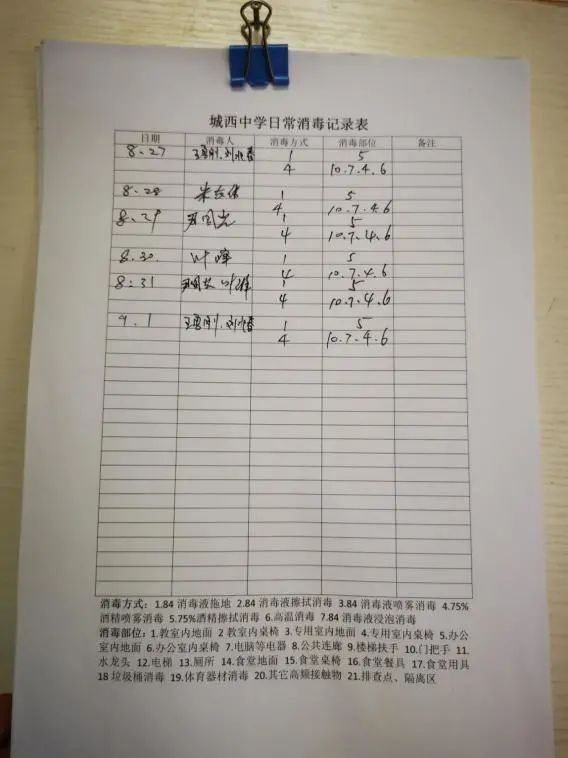 城西中学日常消毒记录表
日期 消毒人 消毒方式 消毒部位 备注
8.27 王勇刚、刘水春 1 5
4 10.7.4.6
8.28 1 5
4 10.7.4.6
8.29 1 5
4 10.7.4.6
8.30. 叶峰 1 5
4 10.7.4.6
8.31 1 5
4 10.7.4.6
9.1 王勇刚、刘水春 1 5
4 10.7.4.6
消毒方式：1.84 消毒液拖地 2.84 消毒液擦拭消毒 3.84 消毒液喷雾消毒 4.75%
酒精喷雾消毒 5.75%酒精擦拭消毒 6.高温消毒 7.84 消毒液浸泡消毒
消毒部位：1.教室内地面 2 教室内桌椅 3.专用室内地面 4.专用室内桌椅 5.办公
室内地面 6.办公室内桌椅 7.电脑等电器 8.公共连廊 9.楼梯扶手 10.门把手 11.
水龙头 12.电梯 13.厕所 14.食堂地面 15.食堂桌椅 16.食堂餐具 17.食堂用具
18 垃圾桶消毒 19.体育器材消毒 20.其它高频接触物 21.排查点、隔离区